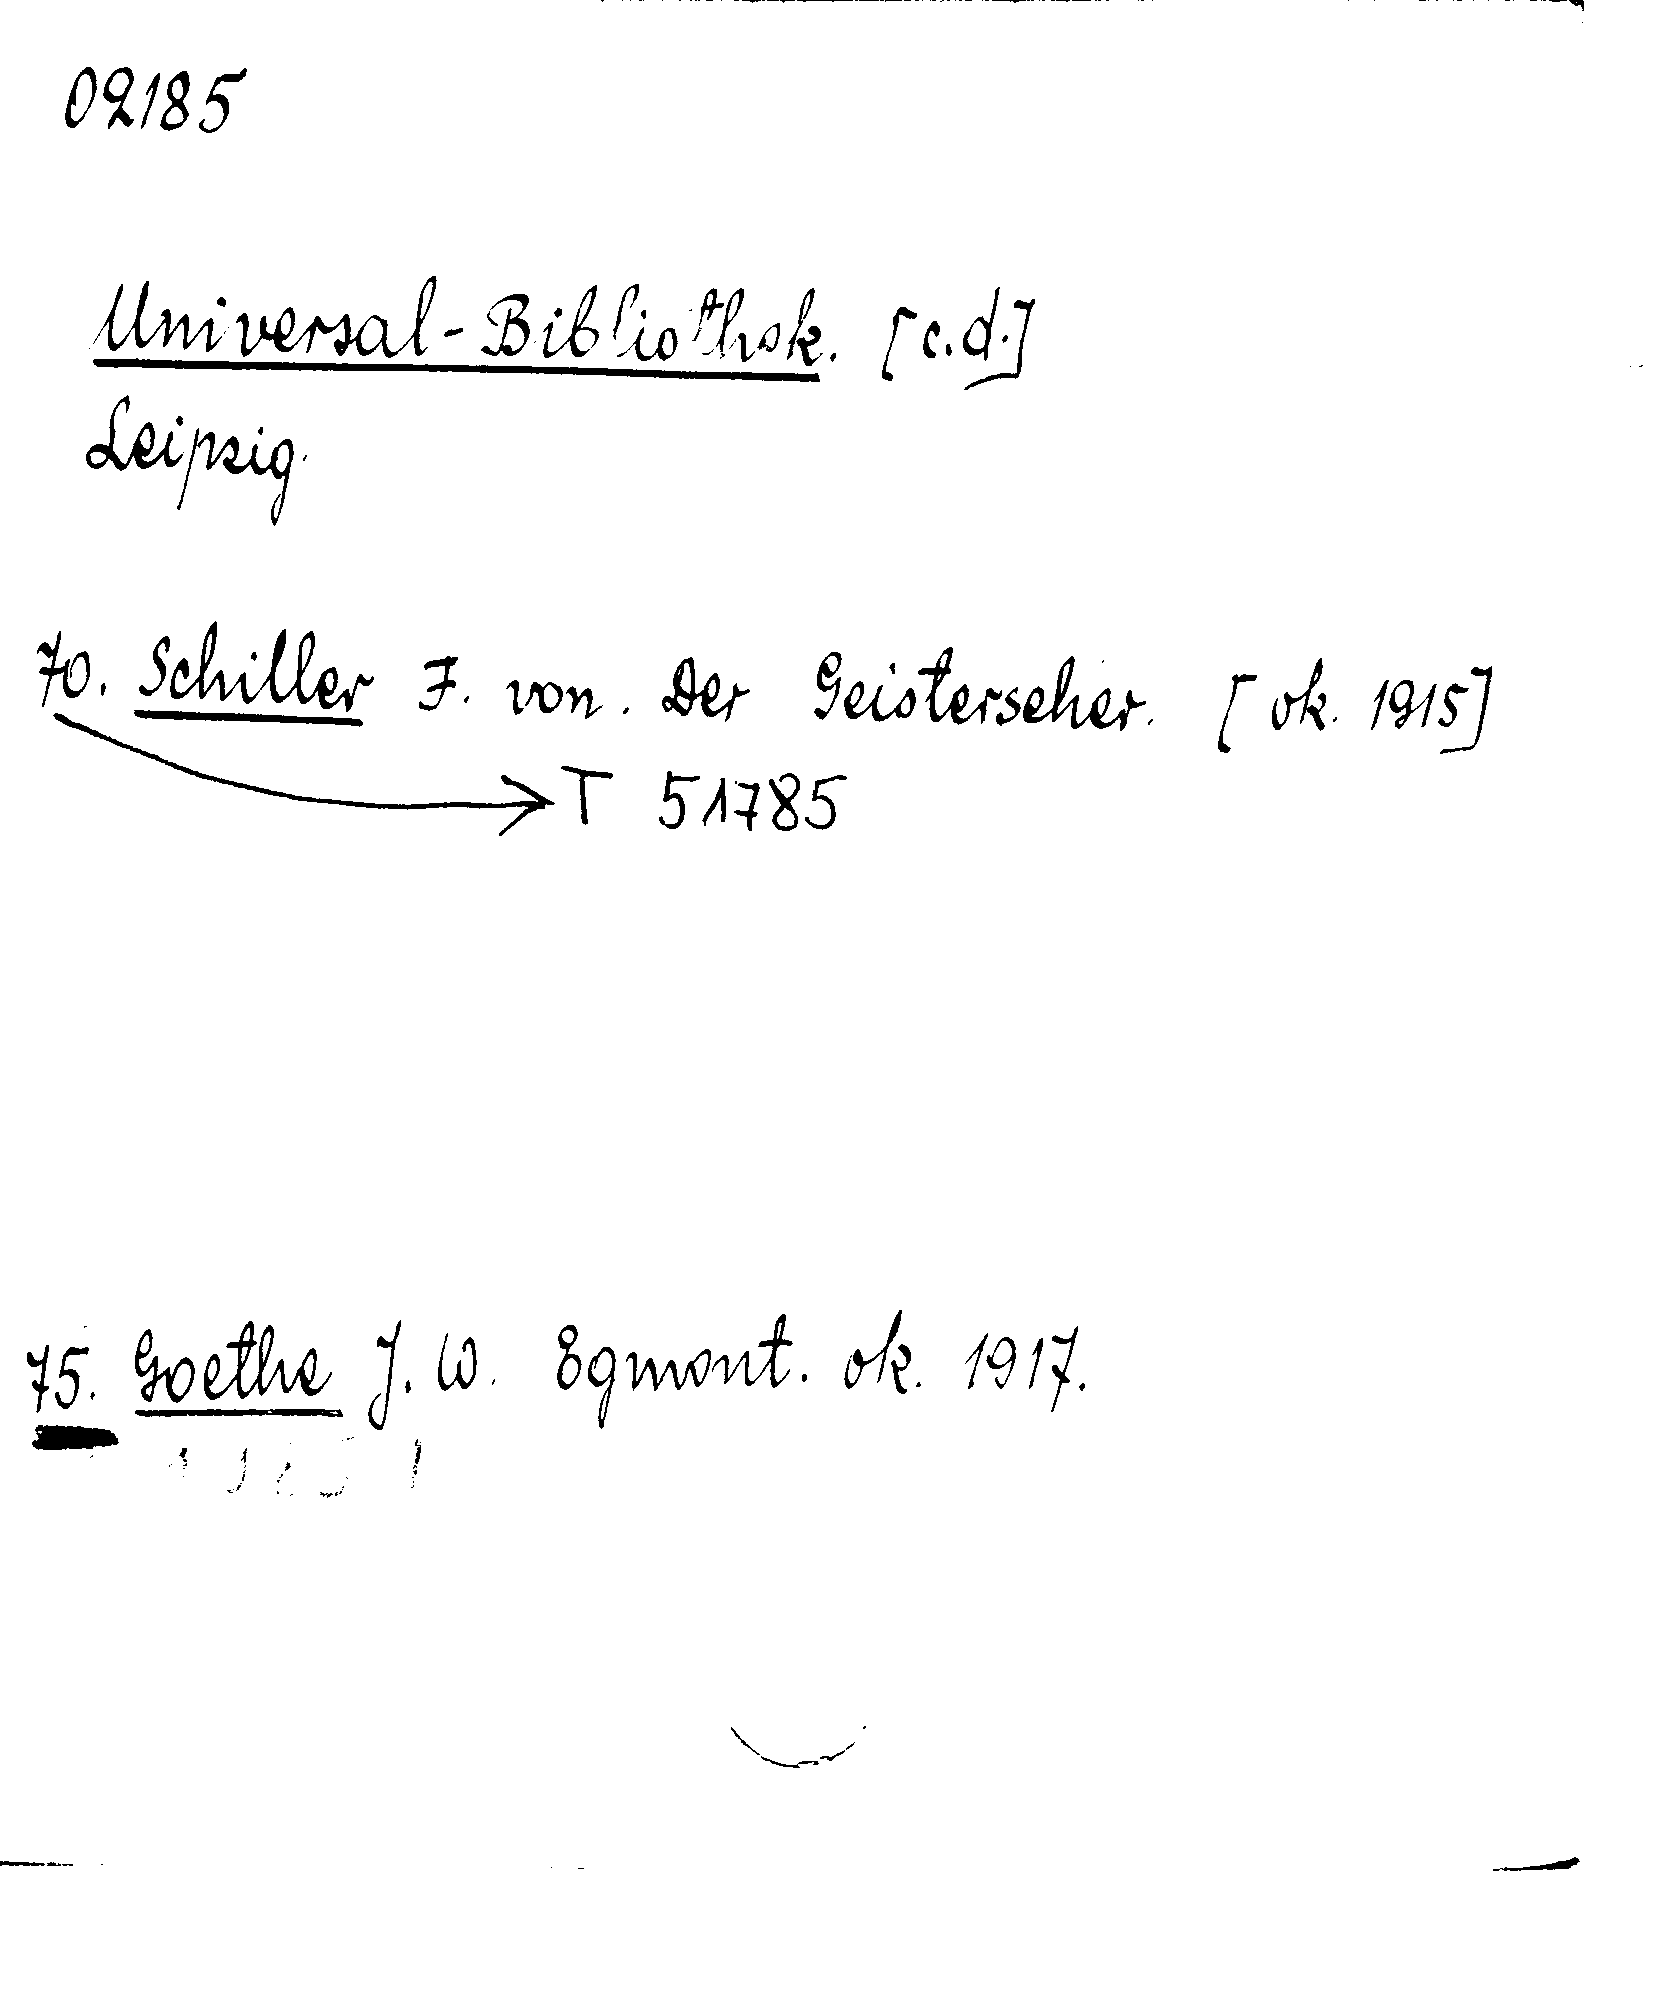 02185
Universal-Bibliothek. [c.d.]
Leipzig.
70. Schiller F. von. Der Geisterseher. [ok. 1915]
T 51785
75. Goethe J. W. Egmont. ok. 1917.